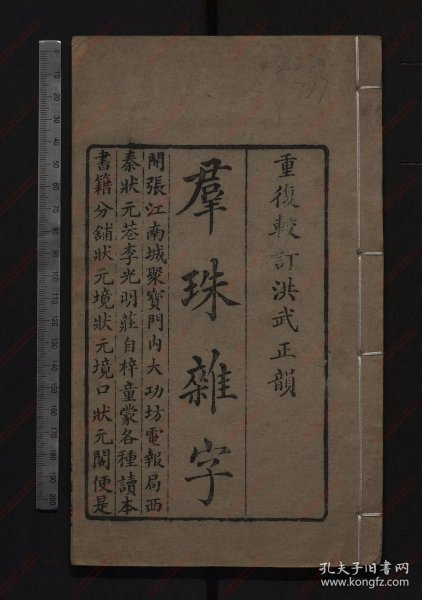 重復較訂洪武正韻
羣珠雜字
開張江南城聚寶門内大功坊電報局西
秦狀元巷李光明莊自梓童蒙各種讀本
書籍分舖狀元境狀元境口狀元閣便是
孔夫子旧书网
kongfz.com